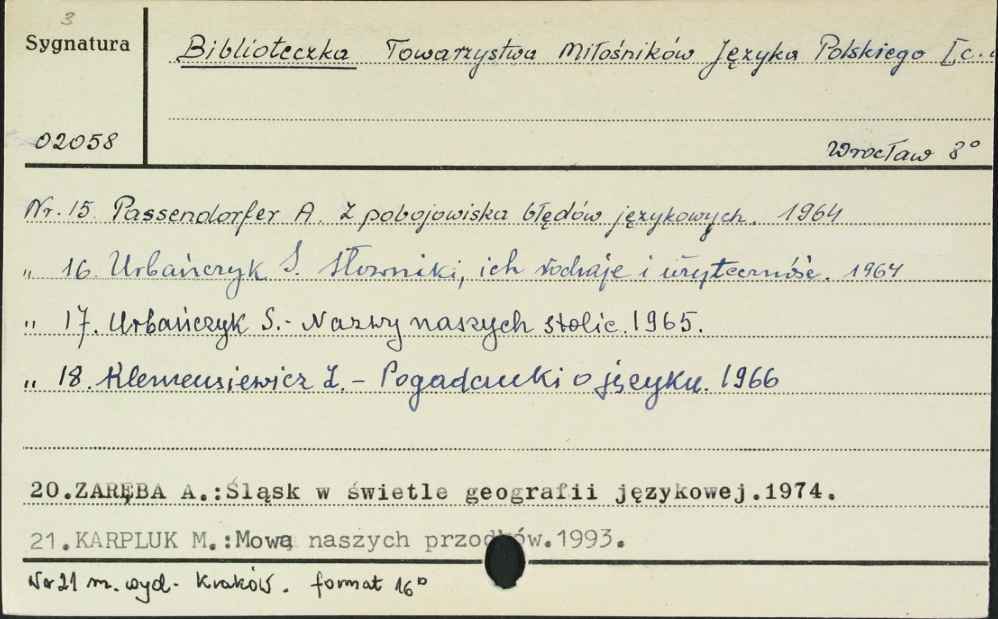 3
Sygnatura
Biblioteczka Towarzystwa Miłośników Języka Polskiego [c.
02058
Wrocław 8°
Nr. 15 Passendorfer A. Z pobojowiska błędów językowych. 1964
„ 16. Urbańczyk S. Słowniki, ich rodzaje i użyteczność. 1964
„ 17. Urbańczyk S.- Nazwy naszych stolic. 1965.
„ 18. Klemensiewicz Z. - Pogadanki o języku. 1966
20.ZARĘBA A.:Śląsk w świetle geografii językowej.1974.
21.KARPLUK M.:Mową naszych przodków.1993.
Nr 21 m. wyd- Kraków. format 16°